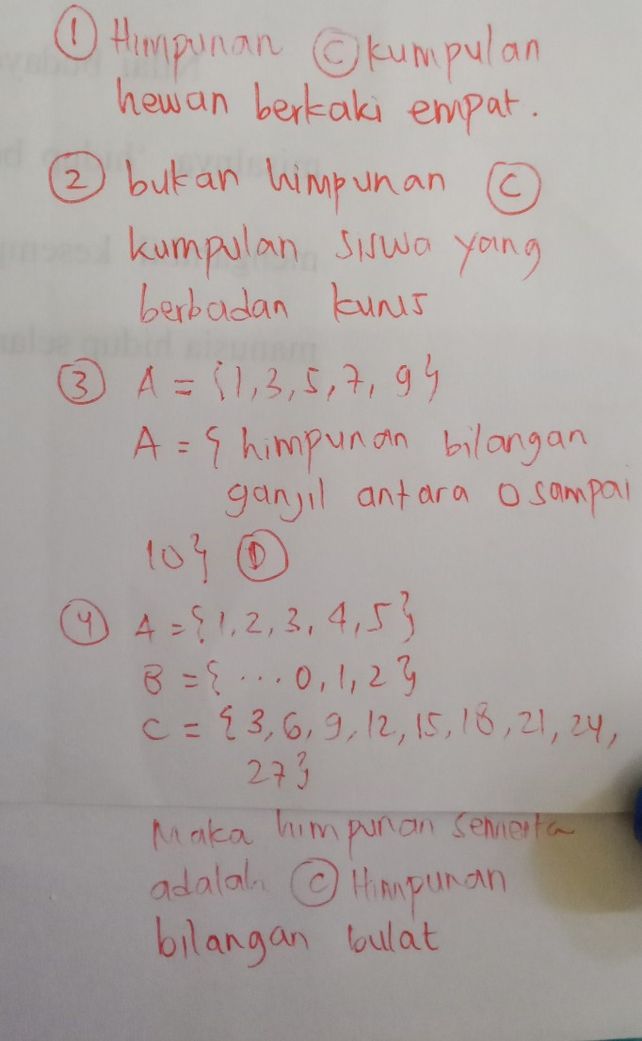 ① Himpunan Ⓒ kumpulan
hewan berkaki empat.
② bukan himpunan Ⓒ
kumpulan siswa yang
berbadan kurus
③ A = {1, 3, 5, 7, 9}
A = { himpunan bilangan
ganjil antara 0 sampai
10} Ⓓ
④ A = {1, 2, 3, 4, 5}
B = { ... 0, 1, 2}
C = {3, 6, 9, 12, 15, 18, 21, 24,
27}
Maka himpunan semesta
adalah Ⓒ Himpunan
bilangan bulat